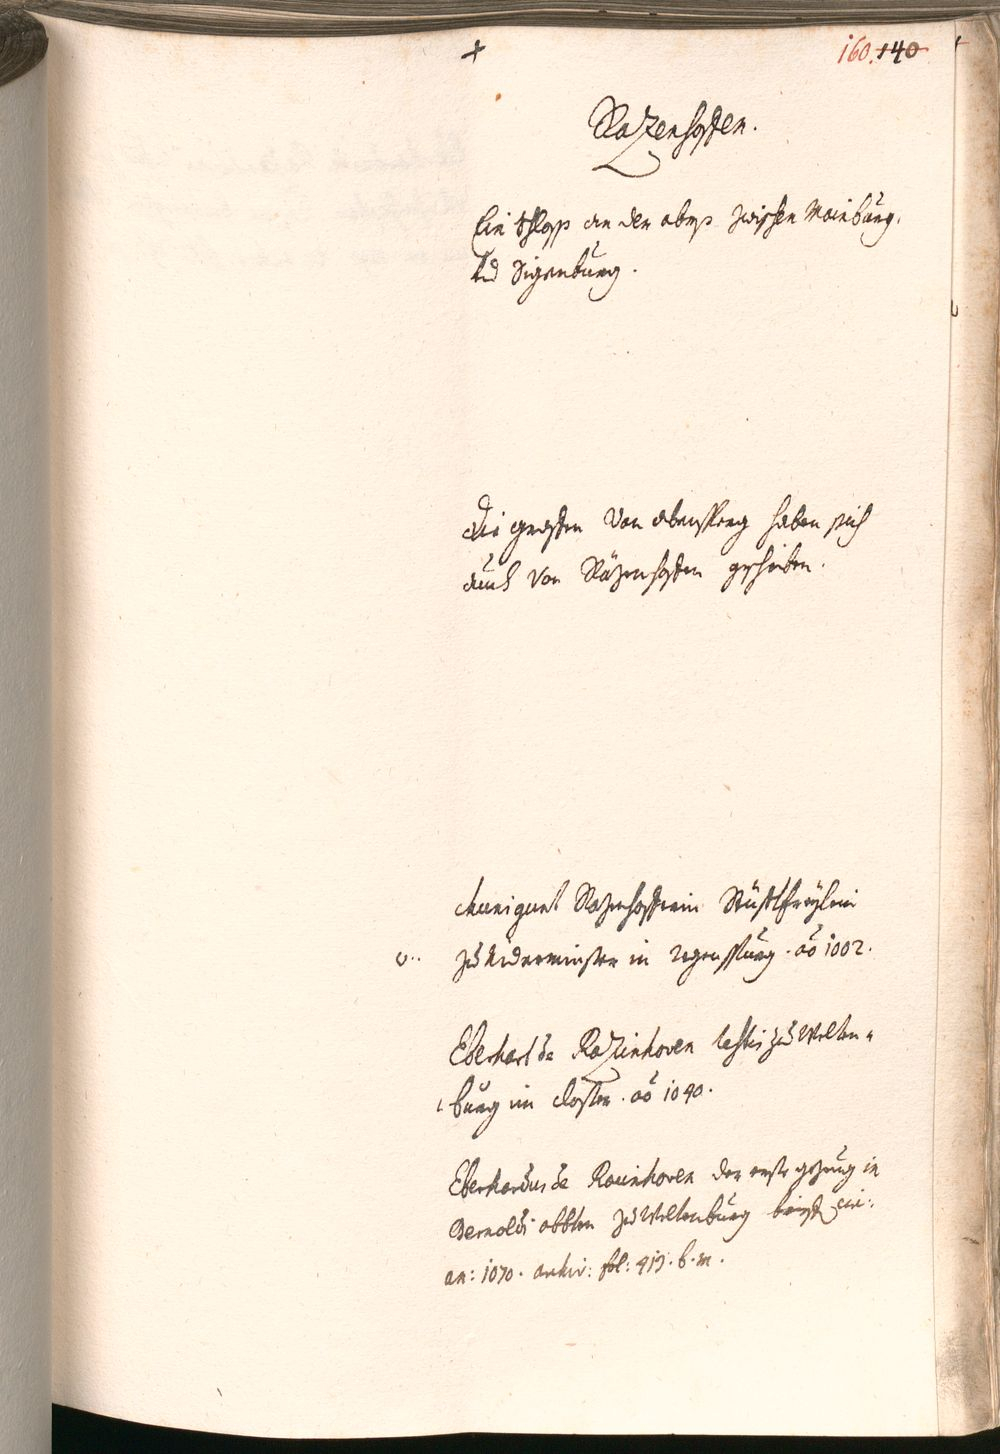 160. 140
Razenhofen.
Ein schloss an der abens zwischen Mainburg.
vnd Sigenburg.
die grafen von abensperg haben sich
auch von Räzenhofen geschriben.
Kunigunt Razenhofferin Stüfftfreylein
zu Nidermünster in regenspurg. aō 1002.
Eberhart de Razinhoven testis zu Welten=
burg im closter. aō 1040.
Eberhardus de Racinhoven der erste gezeug in
Bernoldi abbten zu Weltenburg
an: 1070. arhiv: fol: 419. b. m.